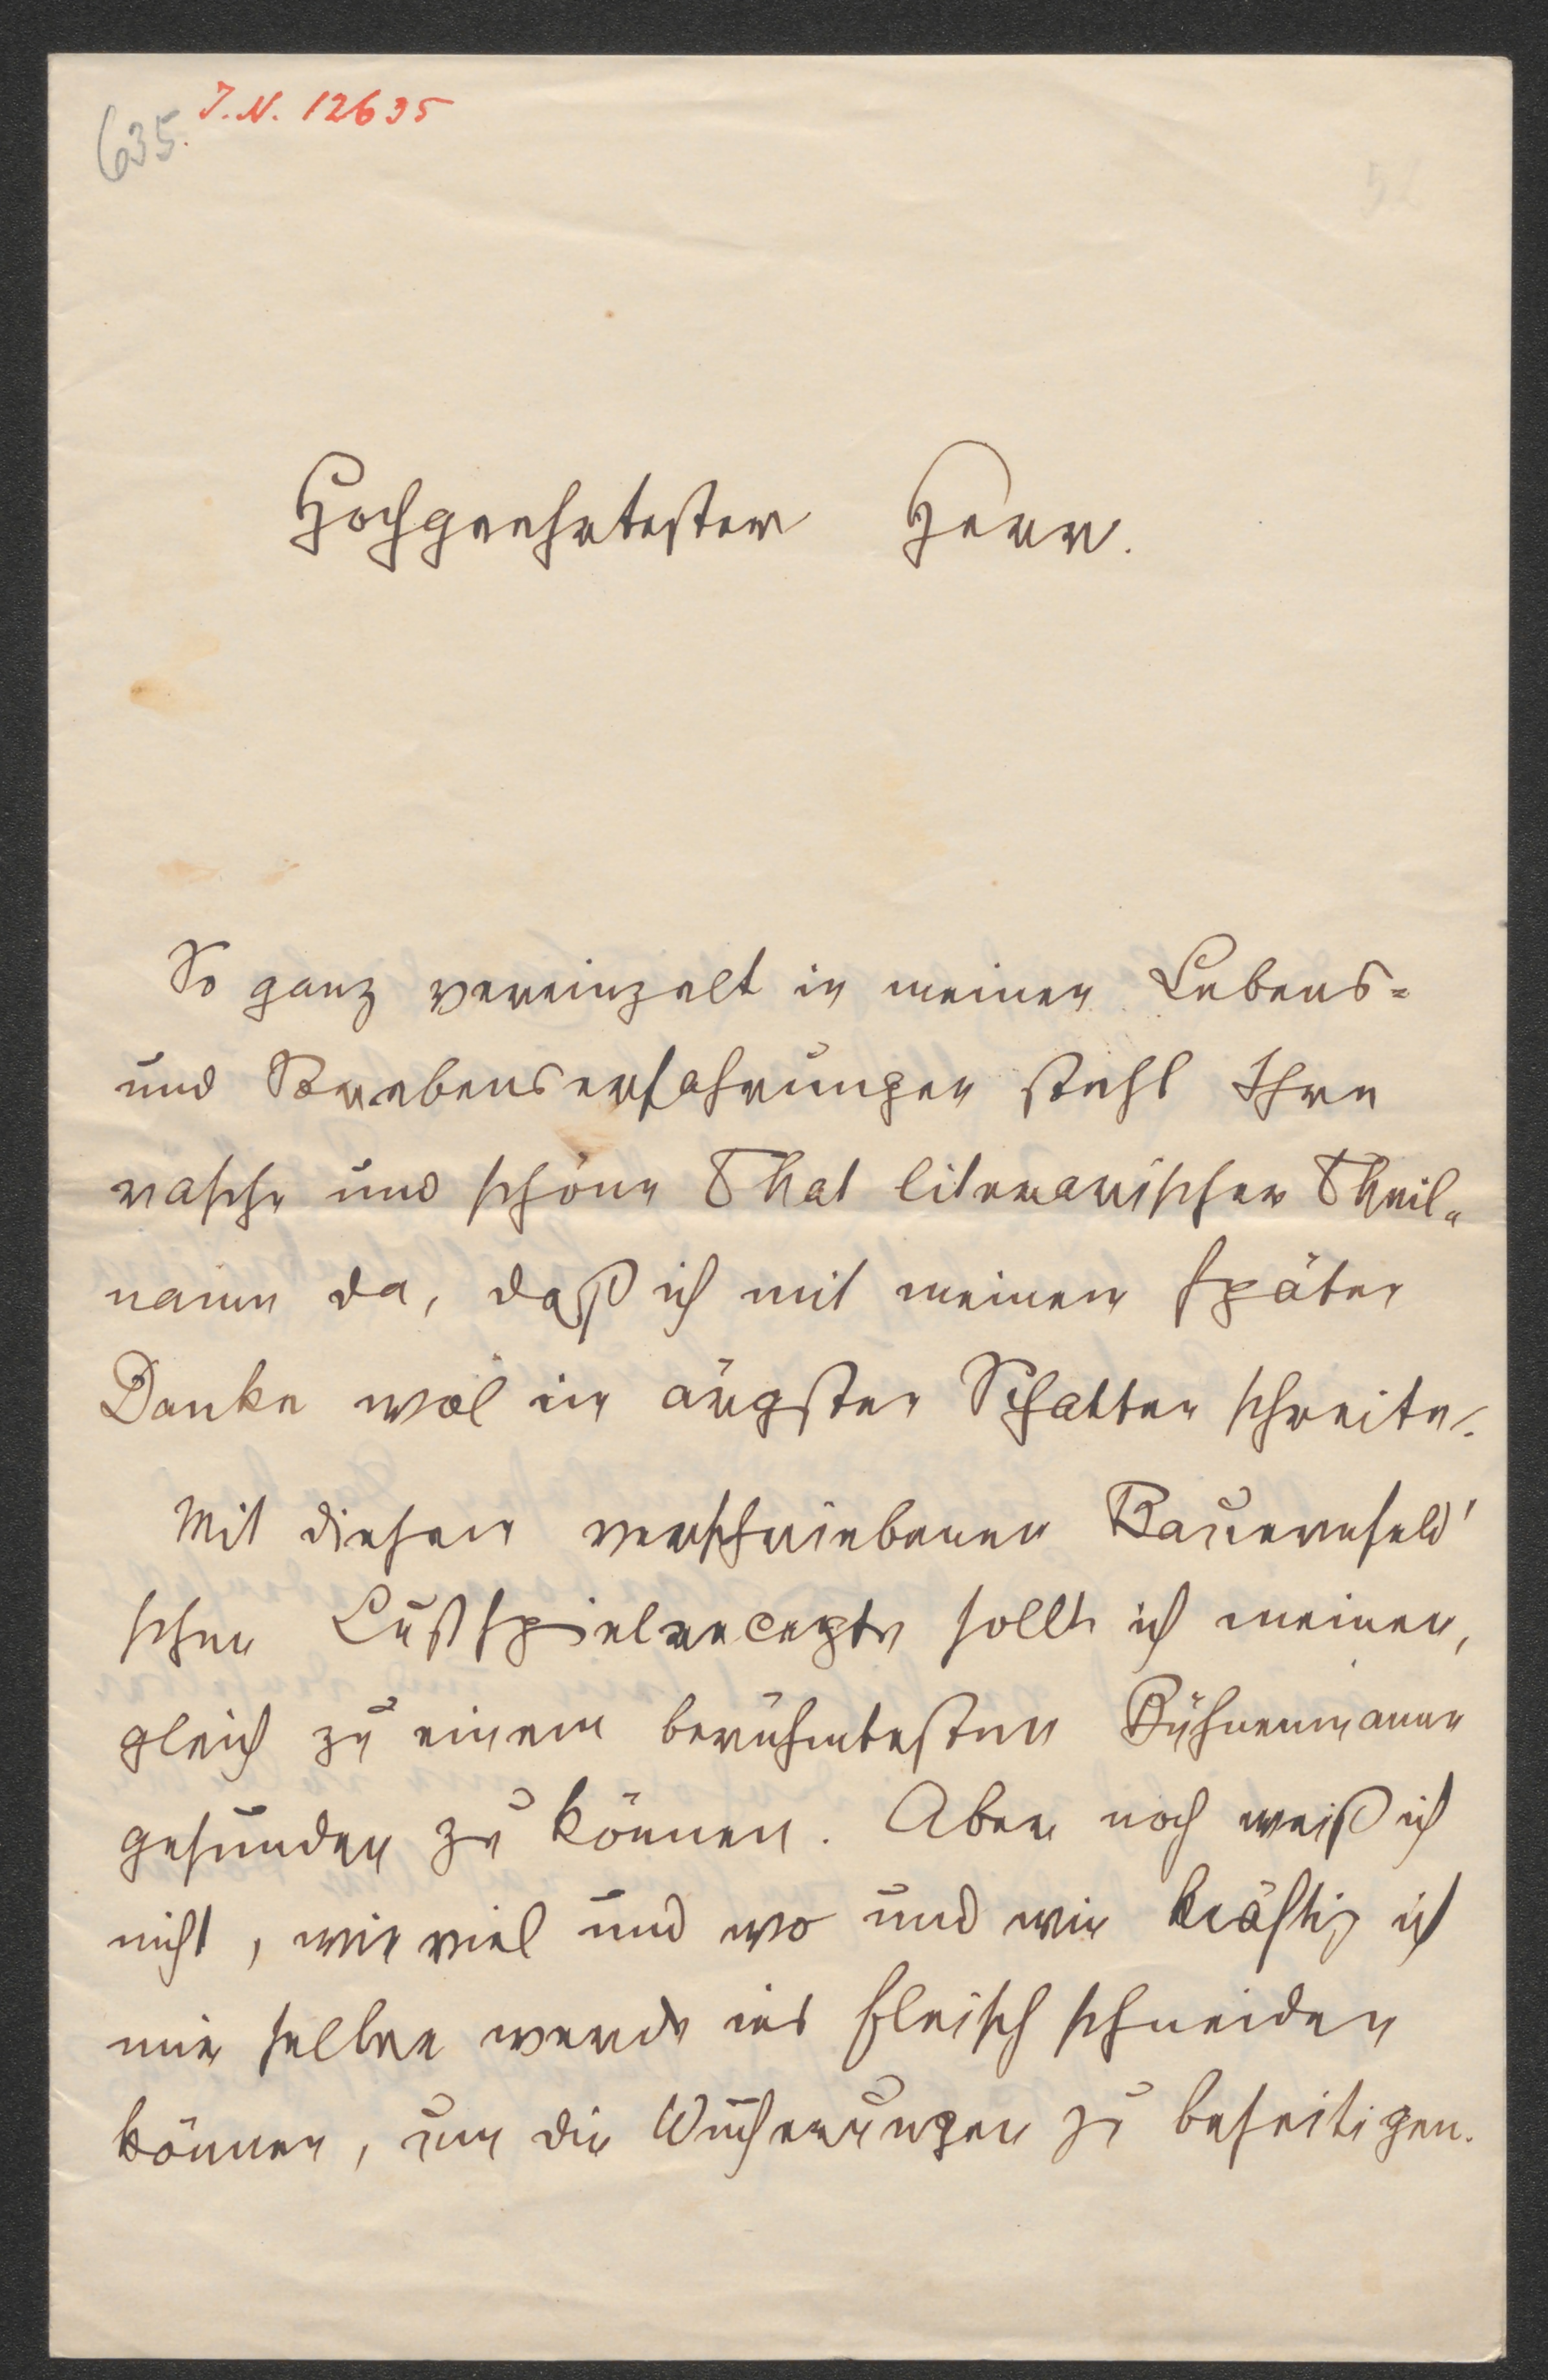 635.
I.N. 12635
Hochgeehrtester Herr.
So ganz vereinzelt in meinen Lebens-
und Strebenserfahrungen steht Ihre
rasche und schöne That literarischer Theil-
name da, daß ich mit meinem späten
Danke wol in ärgsten Schatten schreite.
Mit diesem verschriebenen Bauernfeld'
schen Lustspielrecepte sollt ich meinen,
gleich zu einem berühmtesten Bühnenmanne
gesunden zu können. Aber noch weiß ich
nicht, wie viel und wo und wie kräftig ich
mir selber werde ins Fleisch schneiden
können, um die Wucherungen zu beseitigen.